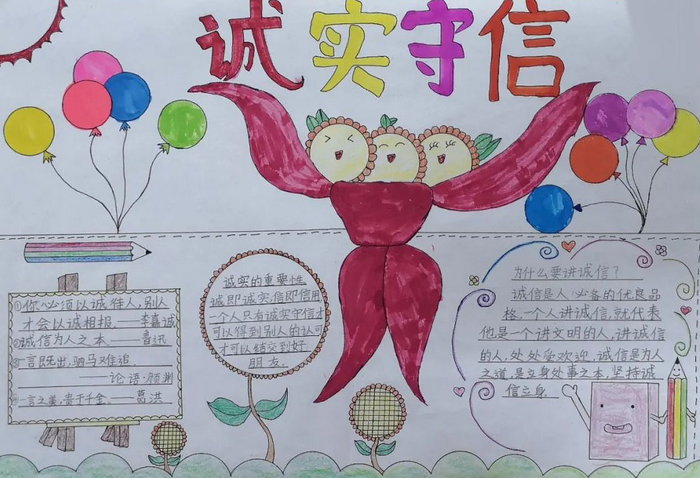 诚实守信
①你必须以诚待人,别人
才会以诚相报。——李嘉诚
②诚信为人之本——鲁迅
③言既出,驷马难追
——论语·颜渊
④言之美,贵于千金。——葛洪
诚实的重要性
诚即诚实,信即信用
一个人只有诚实守信才
可以得到别人的认可
才可以结交到好
朋友。
为什么要讲诚信?
诚信是人必备的优良品
格,一个人讲诚信,就代表
他是一个讲文明的人,讲诚信
的人,处处受欢迎,诚信是为人
之道,是立身处事之本,坚持诚
信立身